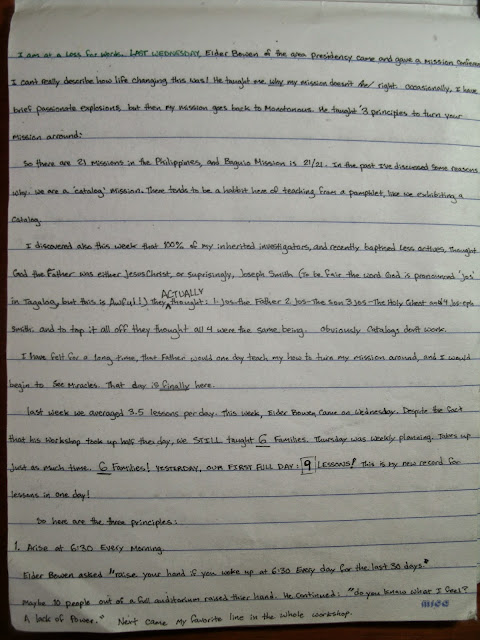 I am at a loss for words. LAST WEDNESDAY, Elder Bowen of the area Presidency came and gave a mission conferenc
I cant really describe how life changing this was! He taught me why my mission doesn't feel right. occasionally, I have
brief passionate explosions, but then my mission goes back to Monotonous. He taught 3 principles to turn your
mission arround:
So there are 21 missions in the Philippines, and Baguio Mission is 21/21. In the past I've discussed some reasons
why. We are a 'catalog' mission. There tends to be a habbit here of teaching from a pamphlet, like we exhibiting a
catalog.
I discovered also this week that 100% of my inherited investigators, and recently baptized less actives, thought
God the Father was either Jesus Christ, or suprisingly, Joseph Smith (To be fair the word God is pronounced 'Jos'
in Tagalog, but this is Awful!) They ACTUALLY thought: 1. Jos-the Father 2 Jos-The son 3 Jos-The Holy Ghost and 4 Jos-eph
Smith. and to top it all off they thought all 4 were the same being. Obviously Catalogs don't work.
I have felt for a long time, that Father would one day teach my how to turn my mission around, and I would
begin to see Miracles. That day is finally here.
last week we averaged 3.5 lessons per day. This week, Elder Bowen came on Wednesday. Despite the fact
that his workshop took up half the day, we STILL taught 6 Families. Thursday was weekly planning. Takes up
just as much time. 6 Families! YESTERDAY, OUR FIRST FULL DAY: 9 LESSONS! This is my new record for
lessons in one day!
So here are the three principles:
1. Arise at 6:30 Every Morning.
Elder Bowen asked "raise your hand if you woke up at 6:30 Every day for the last 30 days."
Maybe 10 people out of a full auditorium raised thier hand. He continued: "do you know what I feel?
A lack of Power." Next came my favorite line in the whole workshop.